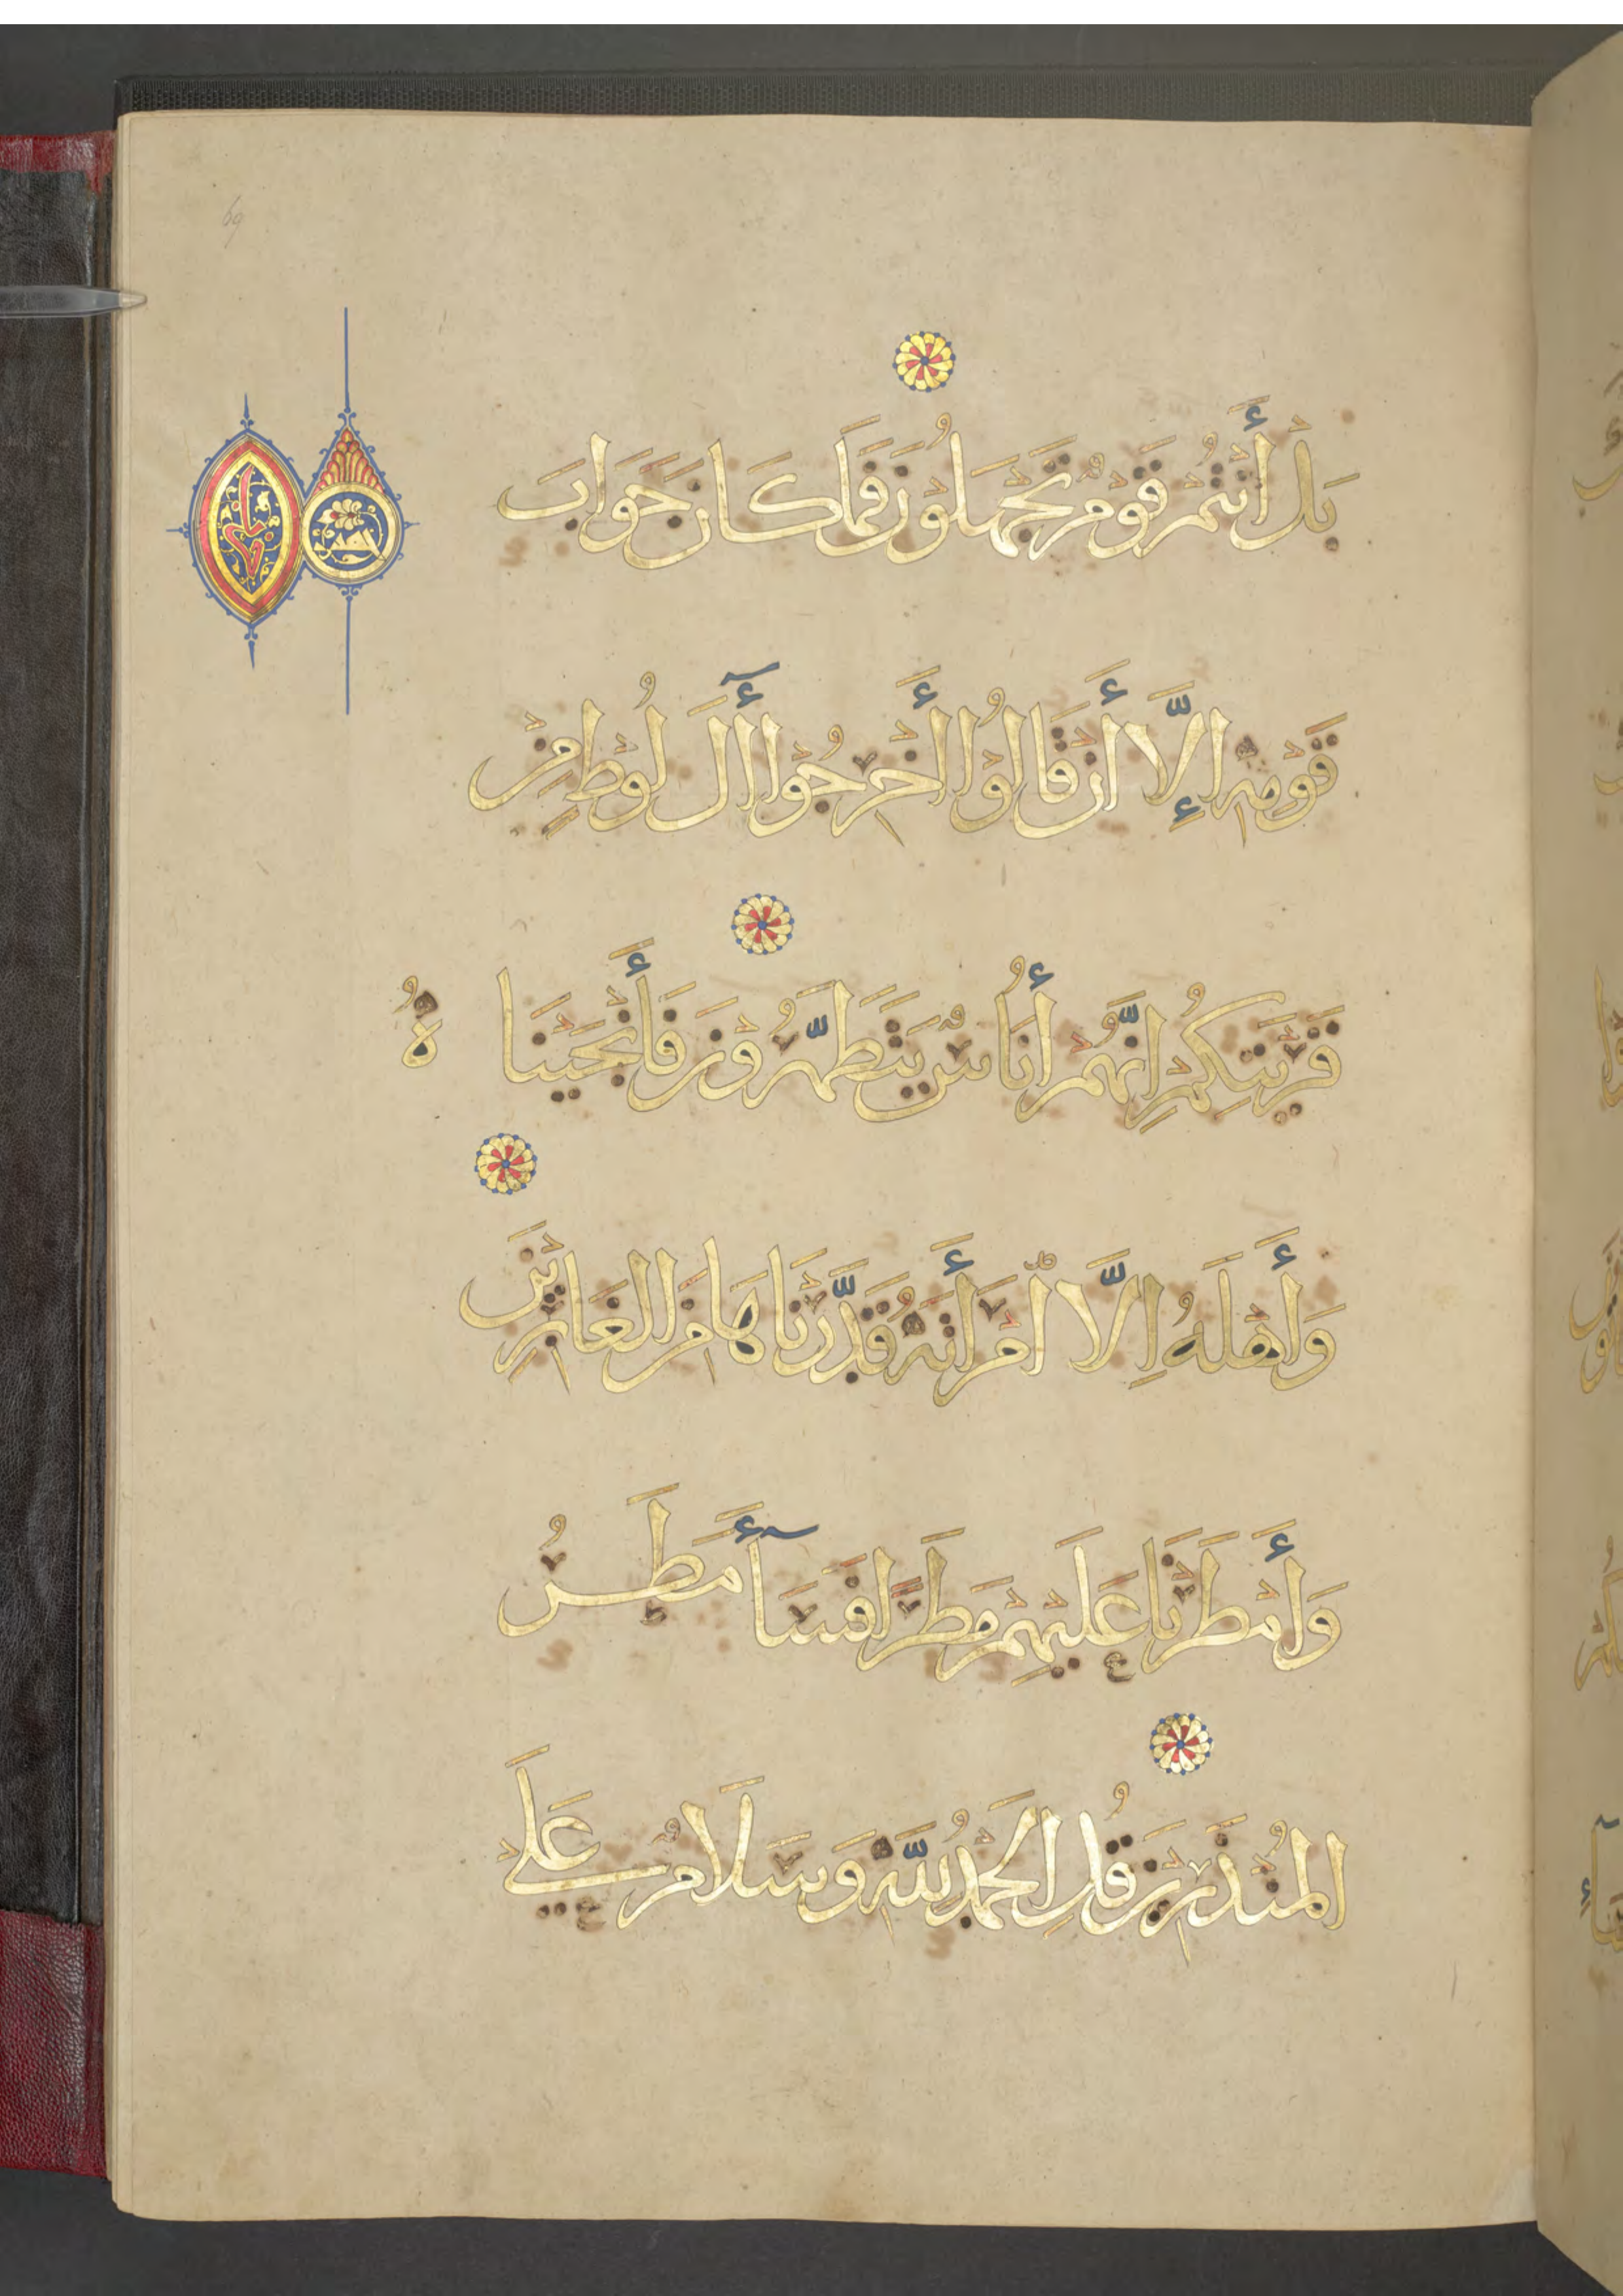 69
بَلْ أَنْتُمْ قَوْمٌ تَجْهَلُوْنَ فَمَا كَانَ جَوَابَ
قَوْمِهِ إِلَّا أَنْ قَالُوْا أَخْرِجُوْا أٓلَ لُوْطٍ مِنْ
قَرْيَتِكُمْ اِنَّهُمْ أُنَاسٌ يَتَطَهَّرُوْنَ فَأَنْجَيْنَا
هُ
وَأَهْلَهُ اِلَّا امْرَأَتَهُ قَدَّرْنَاهَا مِنَ الغَابِرِيْنَ
وَأَمْطَرْنَا عَلَيْهِمْ مَطَرًا فَسَآءَ مَطَرُ
المُنْذَرِيْنَ قُلِ الحَمْدُ لِلَّهِ وَسَلَامٌ عَلَى